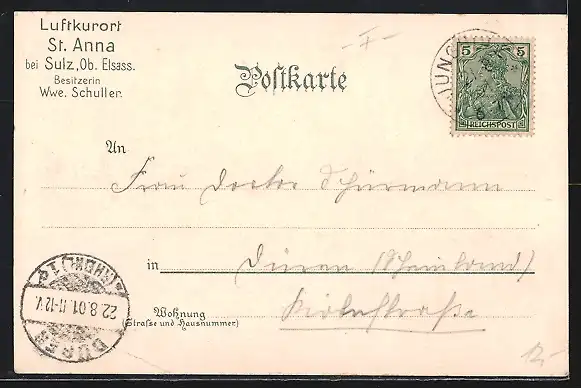 Luftkurort
St. Anna
bei Sulz, Ob. Elsass.
Besitzerin
Wwe. Schuller.
Postkarte
5 5
REICHSPOST
JUNG
An
Frau Doctor Schürmann
in Düren (Rheinland)
Wohnung
(Strasse und Hausnummer)
DUEREN
(RHEINL) 1
22.8.01. 11-12 V.
12,-